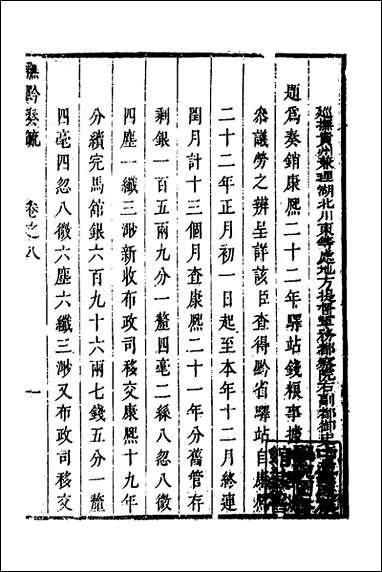 巡撫貴州兼理湖北川東等處地方提督軍務都察院右副都御史
題爲奏銷康熙二十二年驛站錢糧事據
叅議勞之辨呈詳該臣查得黔省驛站自康熙
二十二年正月初一日起至本年十二月終連
閏月計十三個月查康熙二十一年分舊管存
剩銀一百五兩九分一釐四毫二絲八忽八微
四塵一纖三渺新收布政司移交康熙十九年
分續完馬館銀六百九十六兩七錢五分一釐
四毫四忽八微六塵六纖三渺又布政司移交
撫黔奏疏 卷之八 一